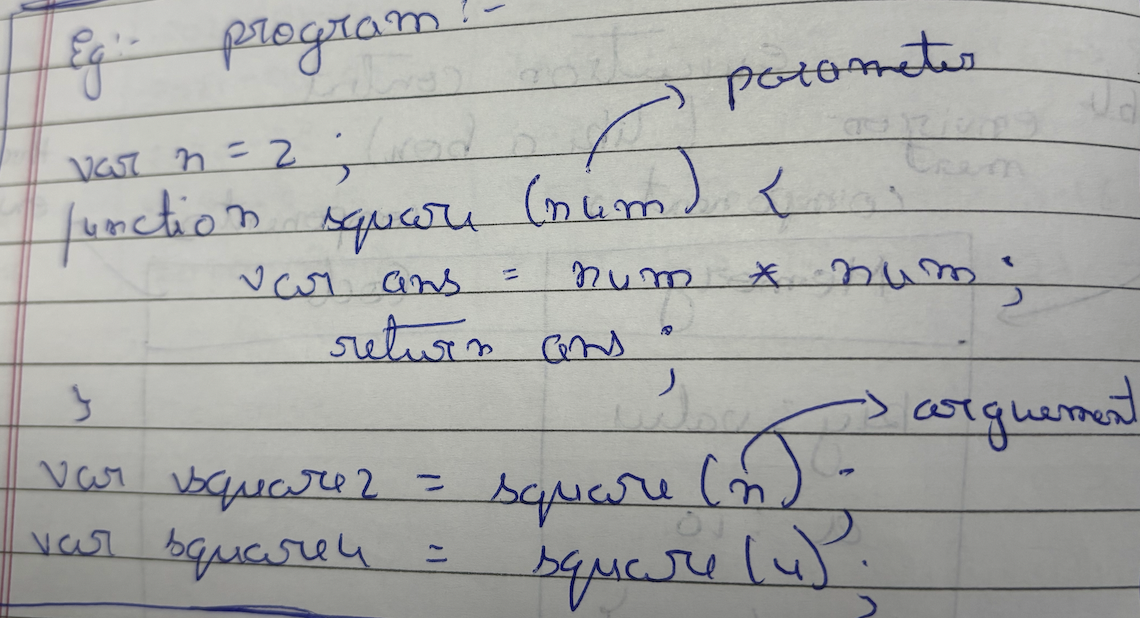 Eg:- program:-
parameter
var n = 2 ;
function square (num) {
var ans = num * num ;
return ans ;
}
arguement
var square2 = square (n) ;
var square4 = square (4) ;